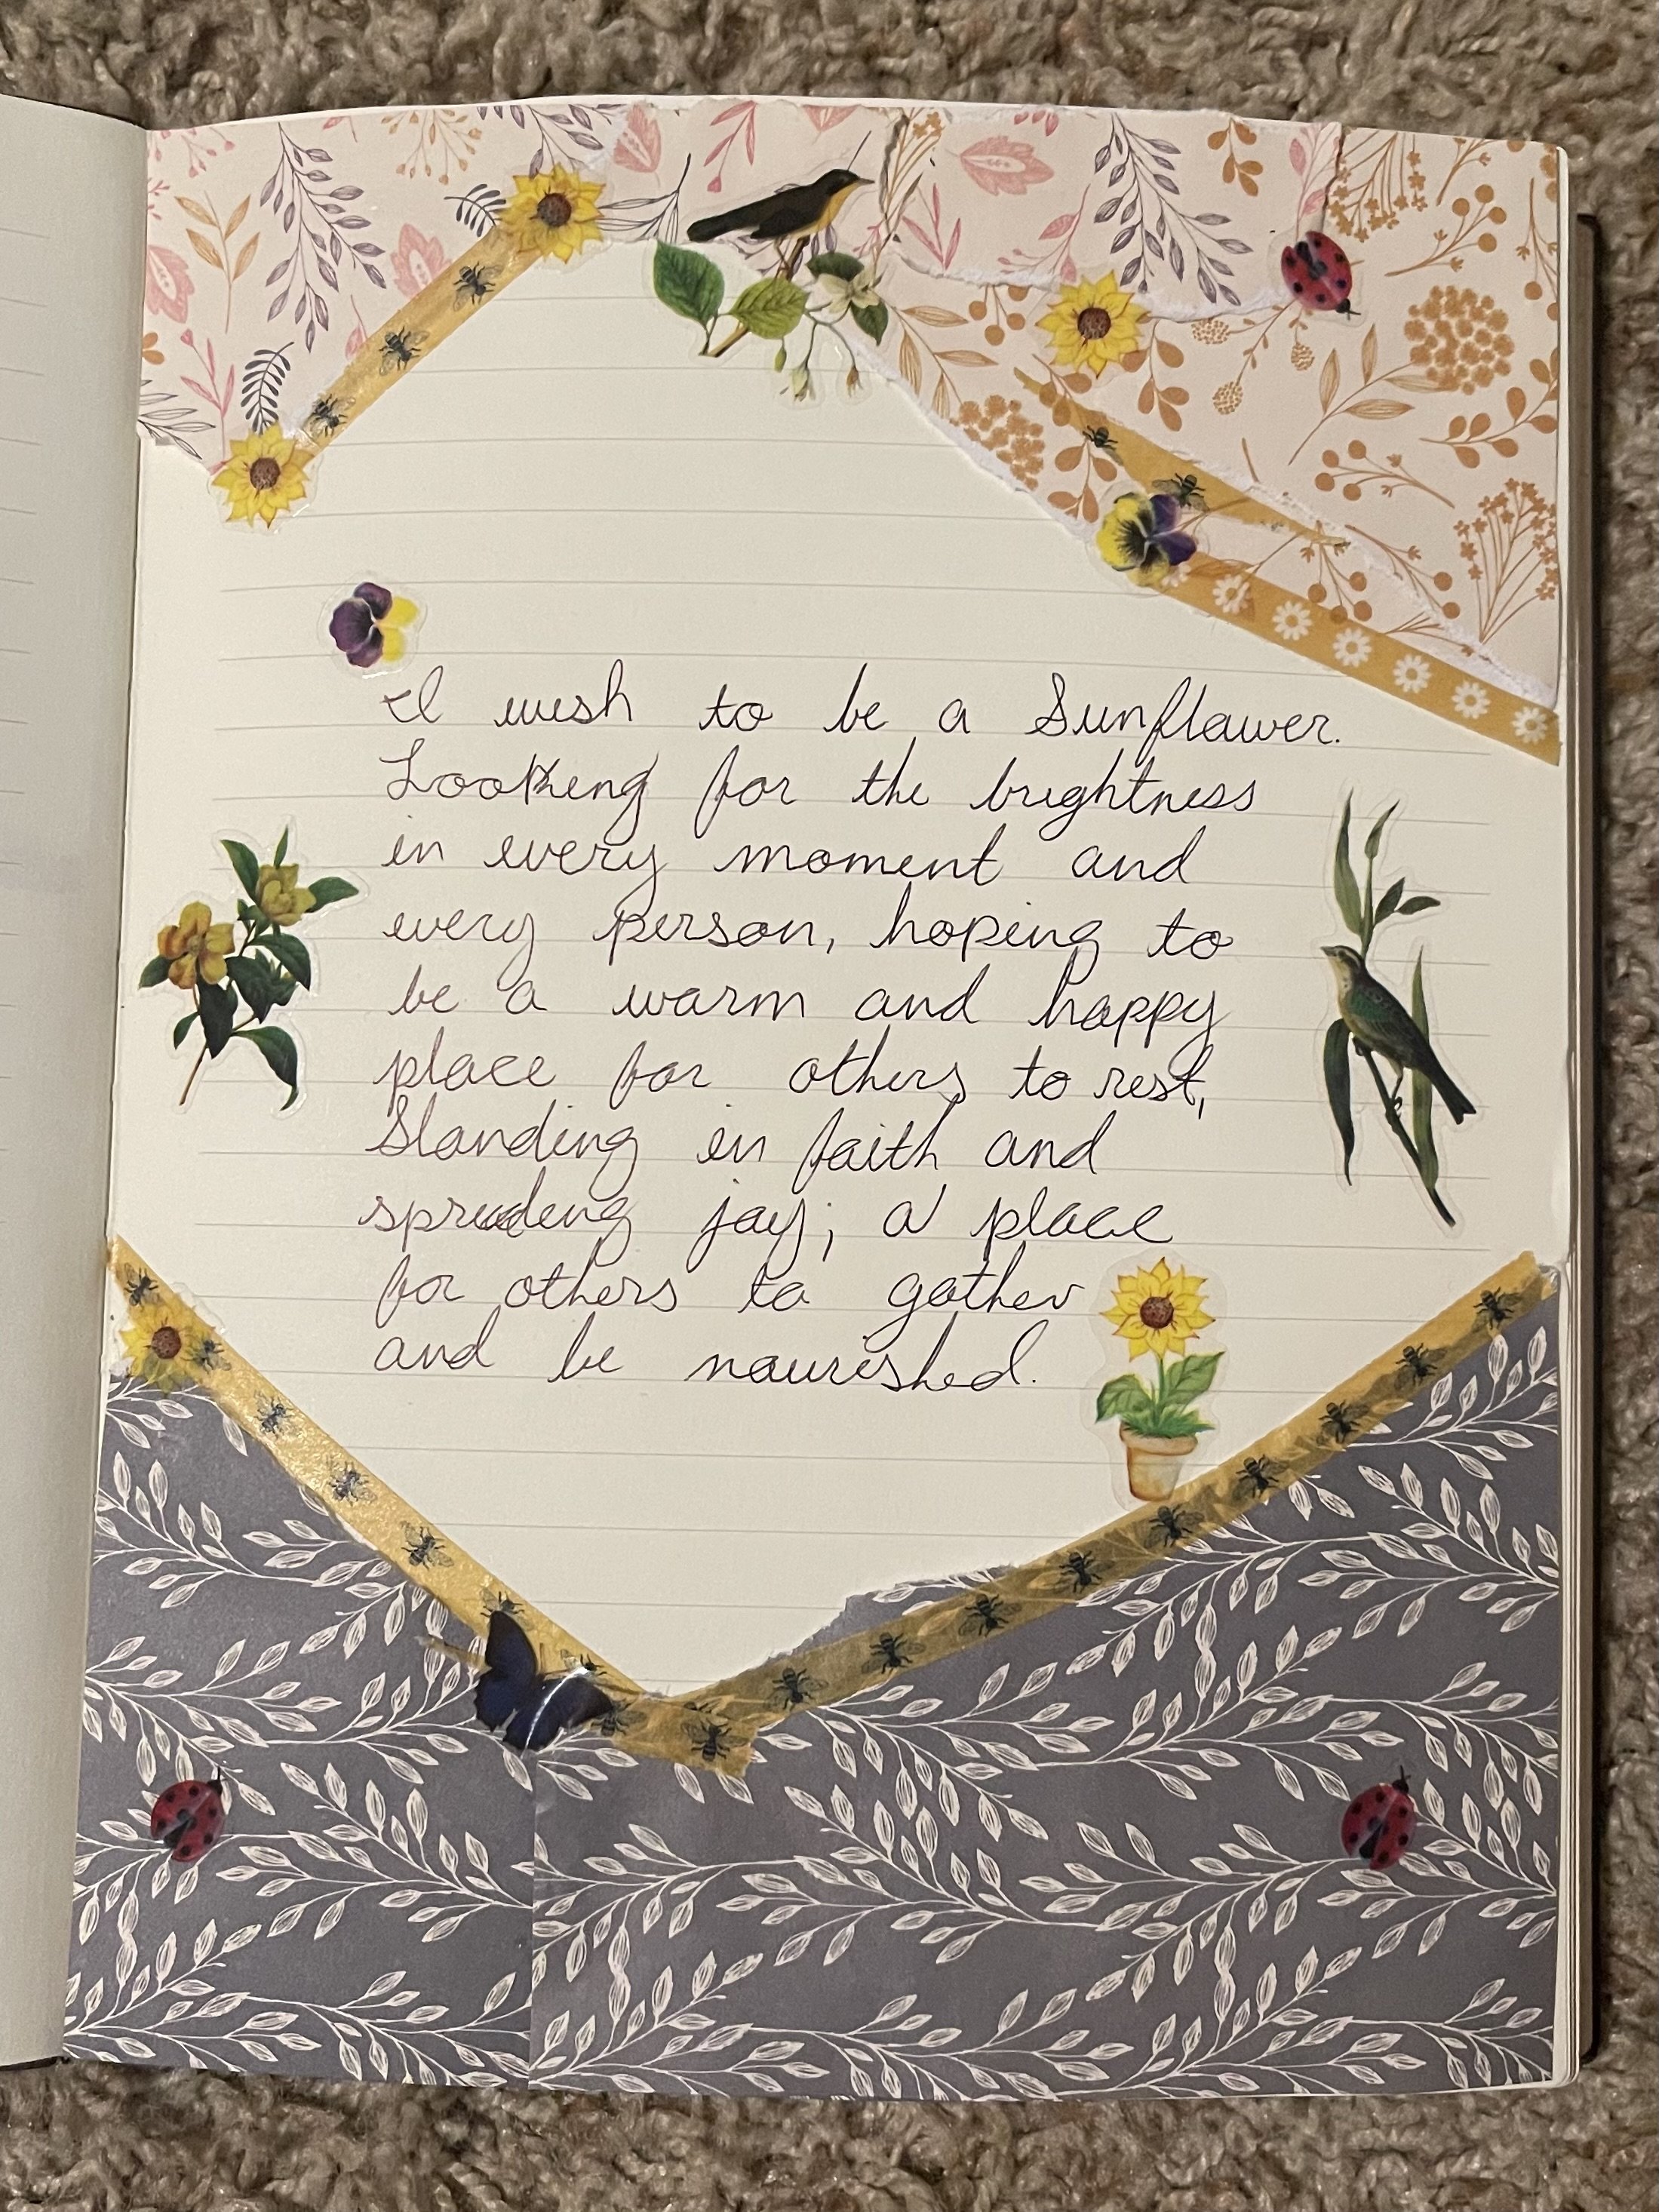 I wish to be a Sunflower.
Looking for the brightness
in every moment and
every person, hoping to
be a warm and happy
place for others to rest,
Standing in faith and
spreading joy; a place
for others to gather
and be nourished.